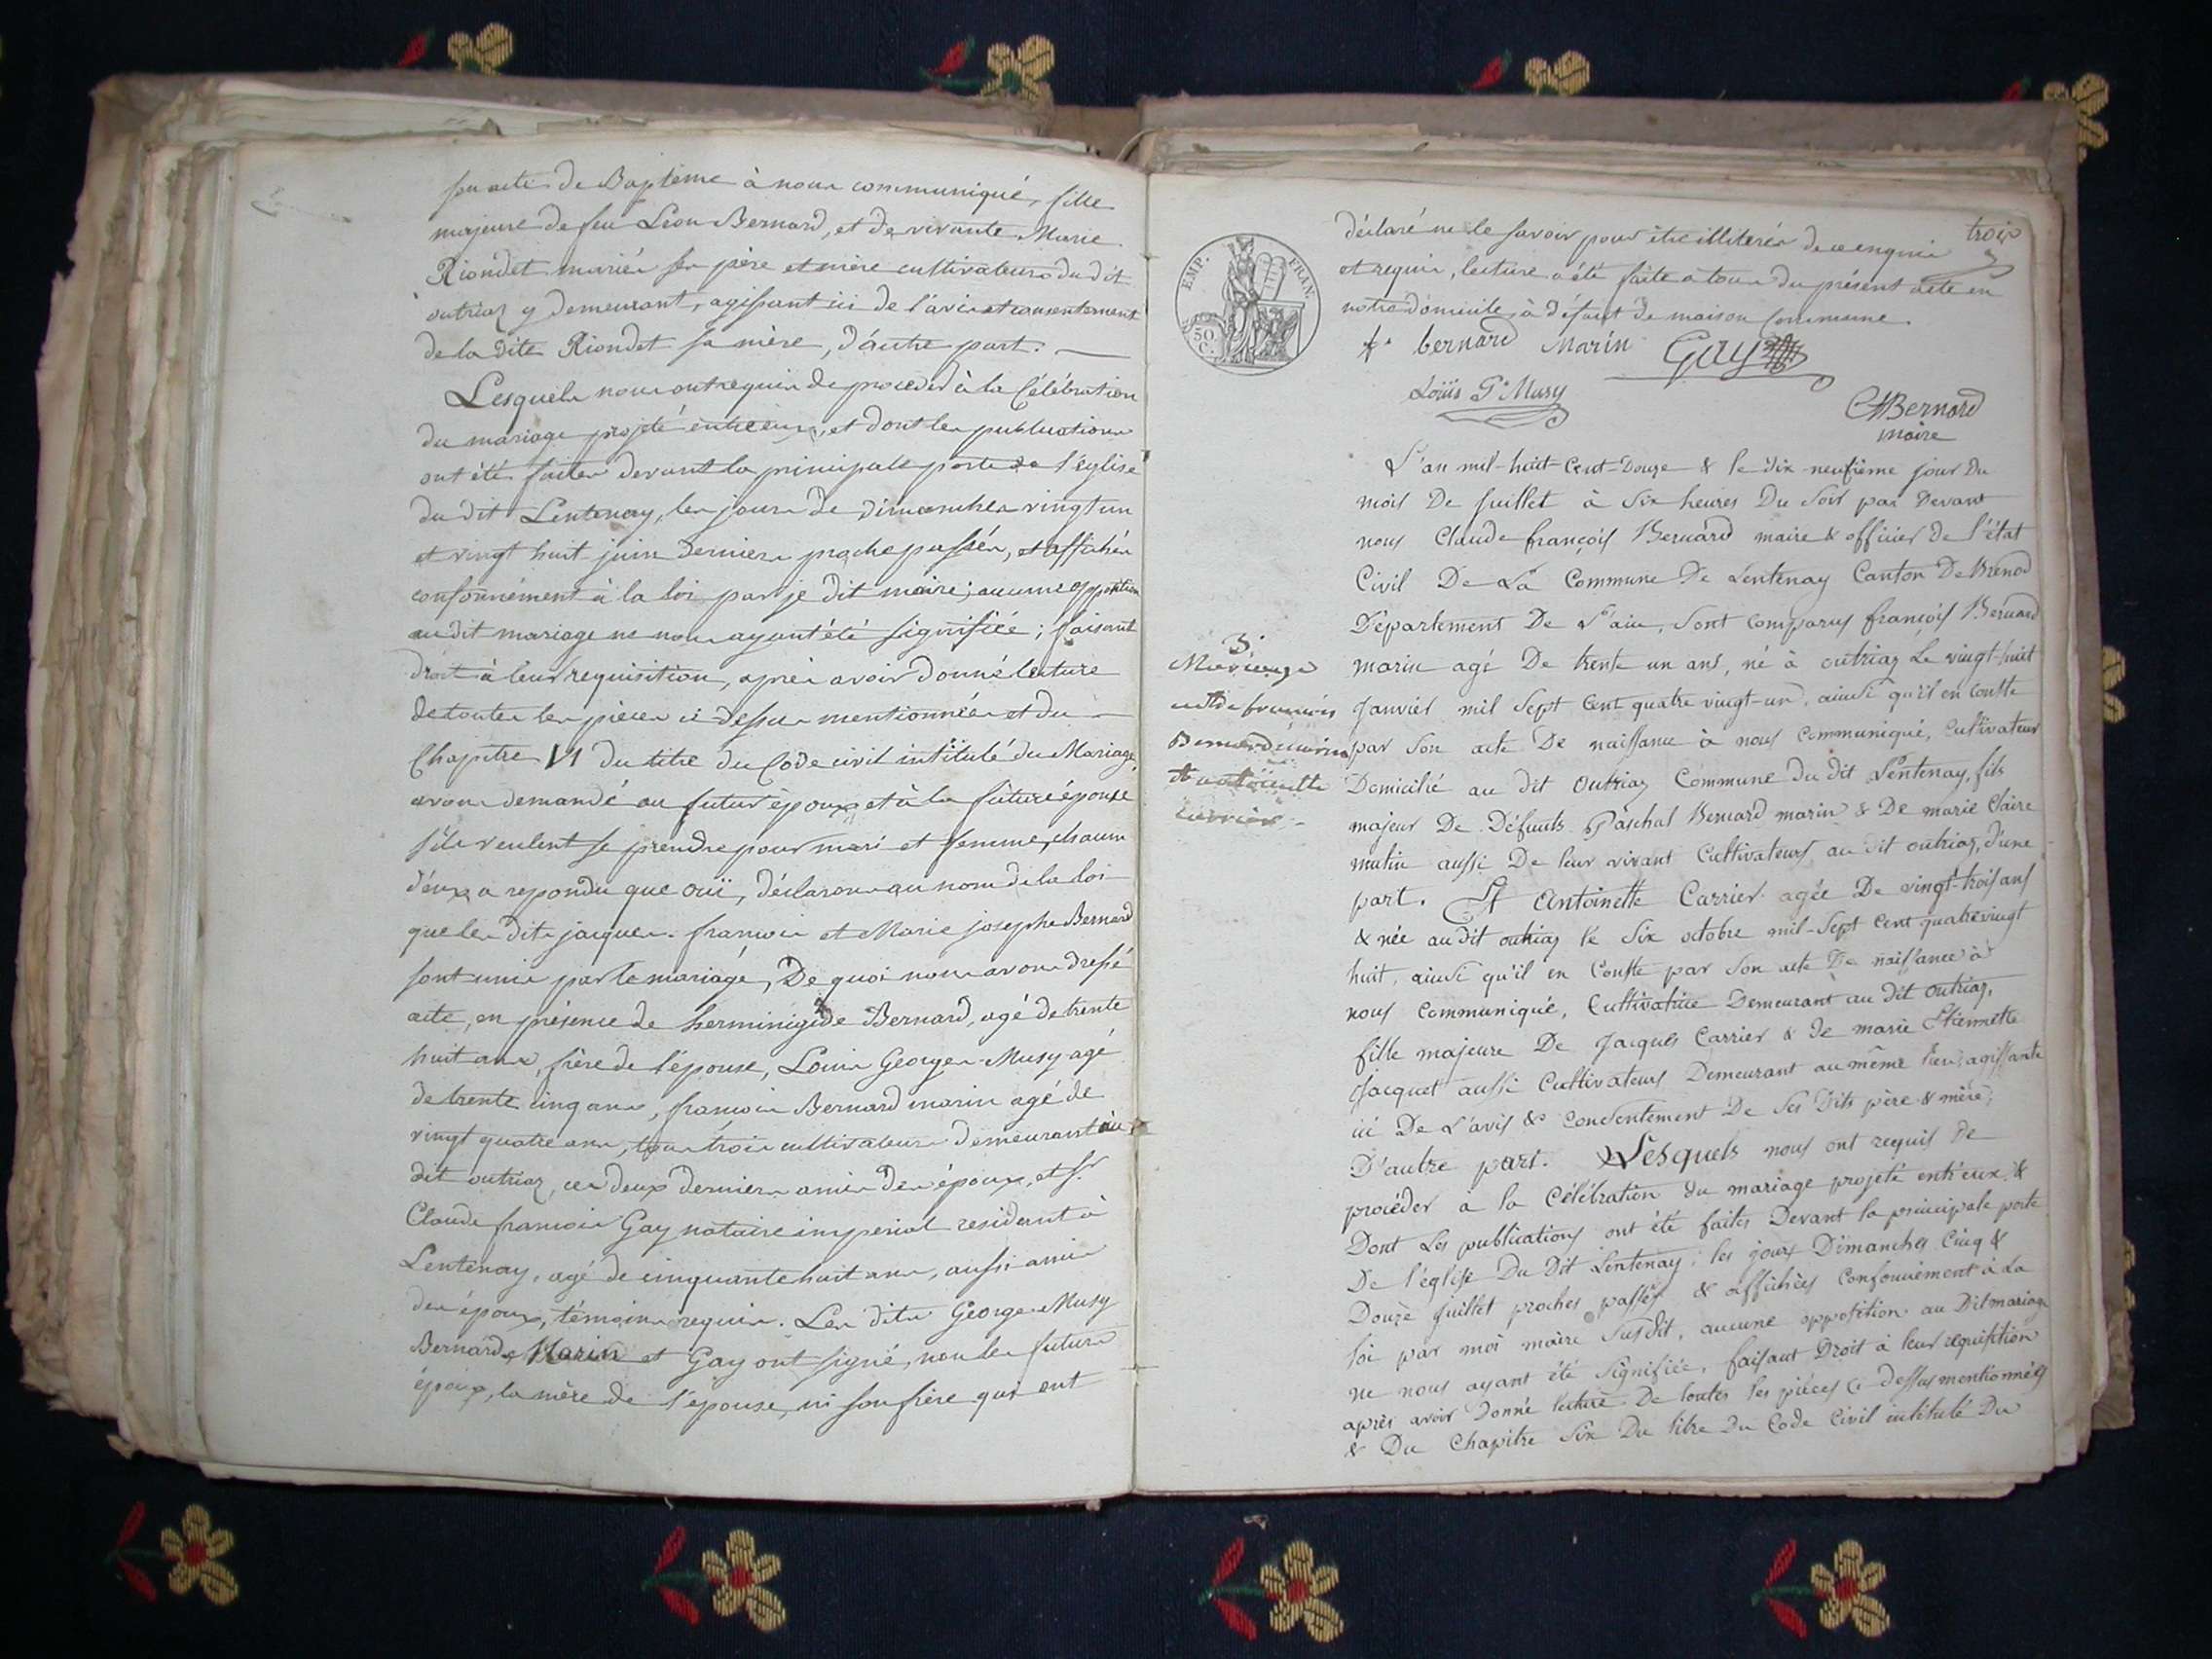 son acte de Baptême à nous communiqué, fille
majeure de feu Léon Bernard, et de vivante Marie
Riondet mariés ses père et mère cultivateurs du dit
outriaz y demeurant, agissant ici de l'avis et consentement
de la dite Riondet sa mère, d'autre part.
Lesquels nous ont requis de procéder à la Célébration
du mariage projeté entre eux, et dont les publications
ont été faites devant la principale porte de l'église
du dit Lentenay, les jours de dimanches vingt un
et vingt huit juin derniers proche passés, et affichés
conformément à la loi par je dit maire; aucune opposition
au dit mariage ne nous ayant été signifiée; faisant
droit à leur requisition, après avoir donné lecture
de toutes les pièces ci dessus mentionnées et du
Chapitre VI du titre du Code civil intitulé du Mariage,
avons demandé au futur époux et à la future épouse
s'ils veulent se prendre pour mari et femme, chacun
d'eux a repondu que ouï, déclarons au nom de la loi
que les dits jacques françois et Marie josephe Bernard
sont unis par le mariage, De quoi nous avons dressé
acte, en présence de herminigide Bernard, agé de trente
huit ans, frère de l'épouse, Louis George Musy agé
de trente cinq ans, françois Bernard marin agé de
vingt quatre ans, tous trois cultivateurs demeurant au
dit outriaz, ces deux derniers amis des époux, et sr
Claude françois Gay notaire imperial residant à
Lentenay, agé de cinquante huit ans, aussi amis
des époux, témoins requis. Les dits George Musy
Bernard Marin et Gay ont signé, non les futurs
époux, la mère de l'épouse, ni son frère qui ont
trois
déclaré ne le savoir pour être illiterés de ce enquis
et requis, lecture a été faite a tous du présent acte en
notre domicile, à défaut de maison commune.
EMP. FRAN.
50
C.
f. bernard Marin Gay
Loüis Ge Musy
CfBernard
maire
L'an mil-huit Cent-Douze & le dix-neufième jour Du
mois De juillet à Six heures Du Soir par Devant
nous Claude françois Bernard maire & officier De l'état
Civil De La Commune De Lentenay Canton De Brénod
Département De L'ain, Sont comparus françois Bernard
marin agé De trente un ans, né à outriaz Le vingt-huit
Janvier mil Sept Cent quatre vingt-un, ainsi qu'il en Conste
par Son acte De naissance à nous Communiqué, Cultivateur
Domicilié au dit Outriaz Commune du dit Lentenay, fils
majeur De Défunts Paschal Bernard marin & De marie Claire
mutin aussi De leur vivant Cultivateurs au dit outriaz, d'une
part. Et Antoinette Carrier agée De vingt-trois ans
& née au dit outriaz le Six octobre mil-Sept Cent quatre vingt
huit, ainsi qu'il en Conste par Son acte De naissance à
nous Communiqué, Cultivatrice Demeurant au dit Outriaz,
fille majeure De Jacques Carrier & de marie Etiennette
Jacquet aussi Cultivateurs Demeurant au même lieu, agissante
ici De L'avis & Consentement De Ses Dits père & mère,
D'autre part. Lesquels nous ont requis De
procéder à la Célébration du mariage projeté entr'eux, &
Dont Les publications ont été faites Devant la principale porte
De l'église Du Dit Lentenay; les jours Dimanches Cinq &
Douze juillet proches passés & affichées Conformément à La
loi par moi maire Susdit, aucune opposition au Dit mariage
ne nous ayant été Signifiée, faisant Droit à leur requisition
après avoir Donné lecture De toutes les pièces Ci-Dessus mentionnées
& Du Chapitre Six Du titre Du Code Civil intitulé Du
3.
Mariage
entre françois
Bernard marin
et antoinette
carrier